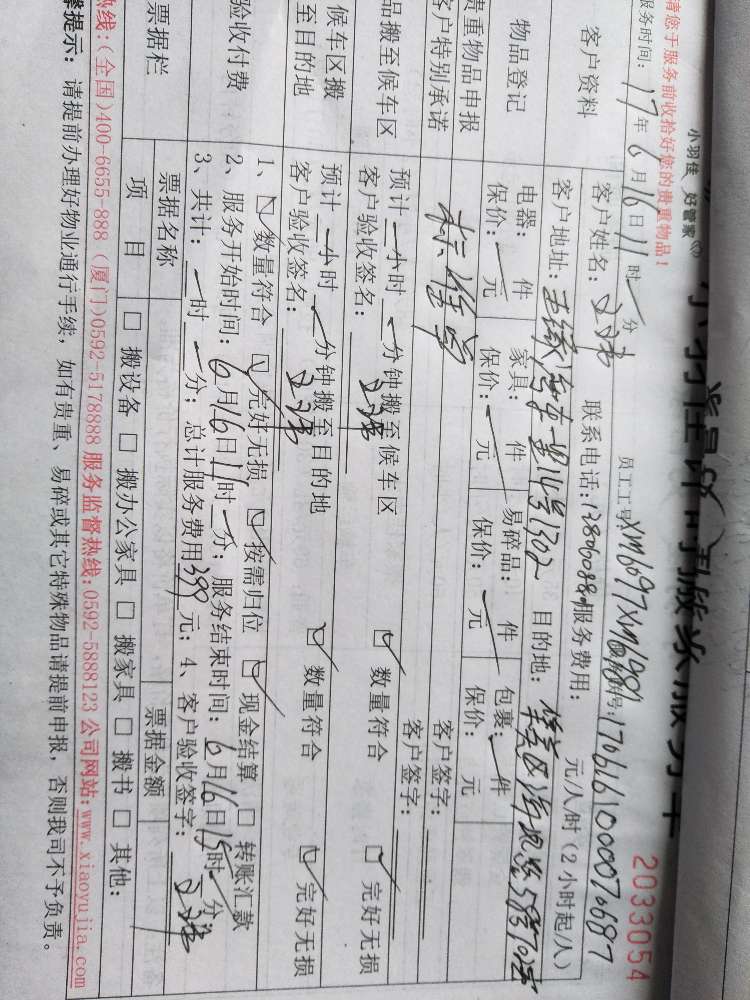 小羽佳 好管家
请您于服务前收拾好您的贵重物品！
2033054
服务时间：17年6月16日11时 分
员工工号：XM6097 XM6989
号：1706161000070687
客户资料
客户姓名：
联系电话：1380608
服务费用： 元/人/时（2小时起/人）
客户地址：
号1302
目的地：
物品登记
电器： 件 家具： 件 易碎品： 件 包裹： 件
保价： 元 保价： 元 保价： 元 保价： 元
贵重物品申报
客户特别承诺
标准单
客户签字：
客户签字：
品搬至候车区
预计一小时 分钟搬至候车区
客户验收签名：
数量符合 完好无损
候车区搬
至目的地
预计一小时 分钟搬至目的地
客户验收签名：
数量符合 完好无损
验收付费
1、数量符合 完好无损 按需归位 现金结算 转账汇款
2、服务开始时间：6月16日11时 分；服务结束时间：6月16日15时 分
3、共计： 时 分；总计服务费用399元；4、客户验收签字：
票据栏
票据名称
票据金额
项 目
搬设备 搬办公家具 搬家具 搬书 其他：
热线：(全国)400-6655-888 (厦门)0592-5178888 服务监督热线：0592-5888123 公司网站：www.xiaoyujia.com
提示：请提前办理好物业通行手续，如有贵重、易碎或其它特殊物品请提前申报，否则我司不予负责。